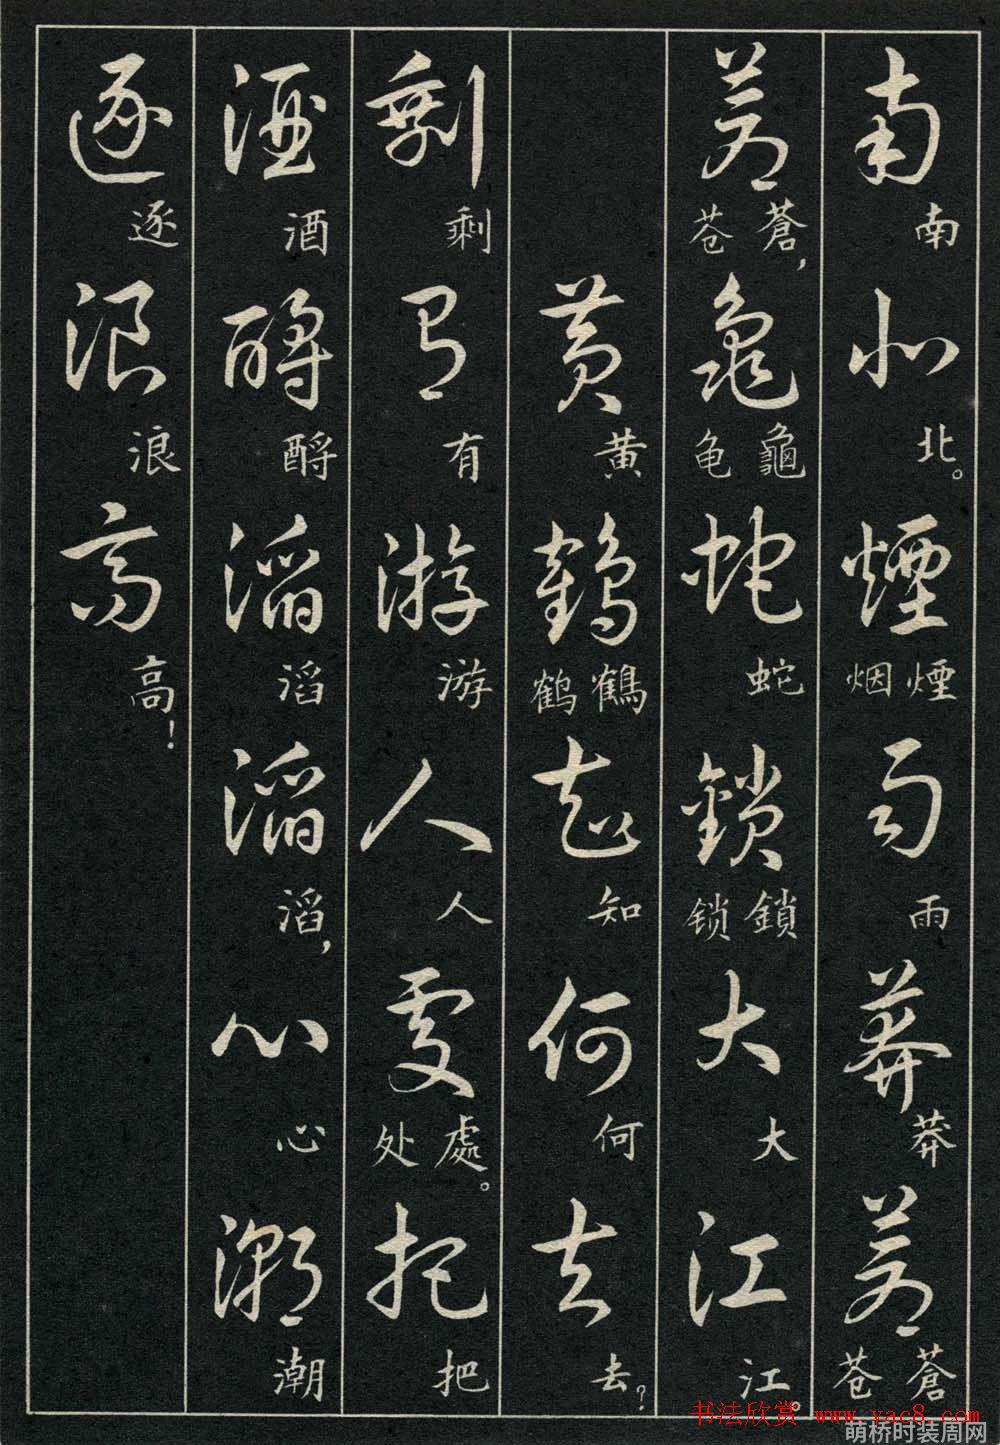 南北。煙雨莽蒼
南北。煙烟雨莽蒼苍
蒼龜蛇鎖大江
蒼苍，龜龟蛇鎖锁大江。
黄鶴知何去
黄鶴鹤知何去？
剩有游人處把
剩有游人處处。把
酒酹滔滔心潮
酒酹滔滔，心潮
逐浪高
逐浪高！
书法欣赏 www.yac8.com
萌桥时装周网